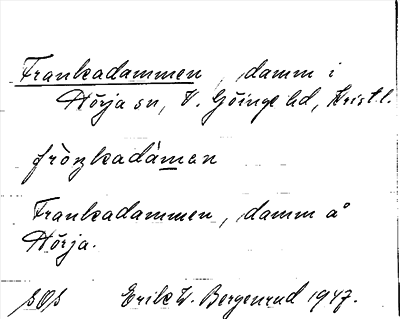 Frankadammen, damm i
Hörja sn, V. Göinge hd, Krist.l.
fròŋkadàmen
Frankadammen, damm å
Hörja.
SOS Erik W. Bergenrud 1947.